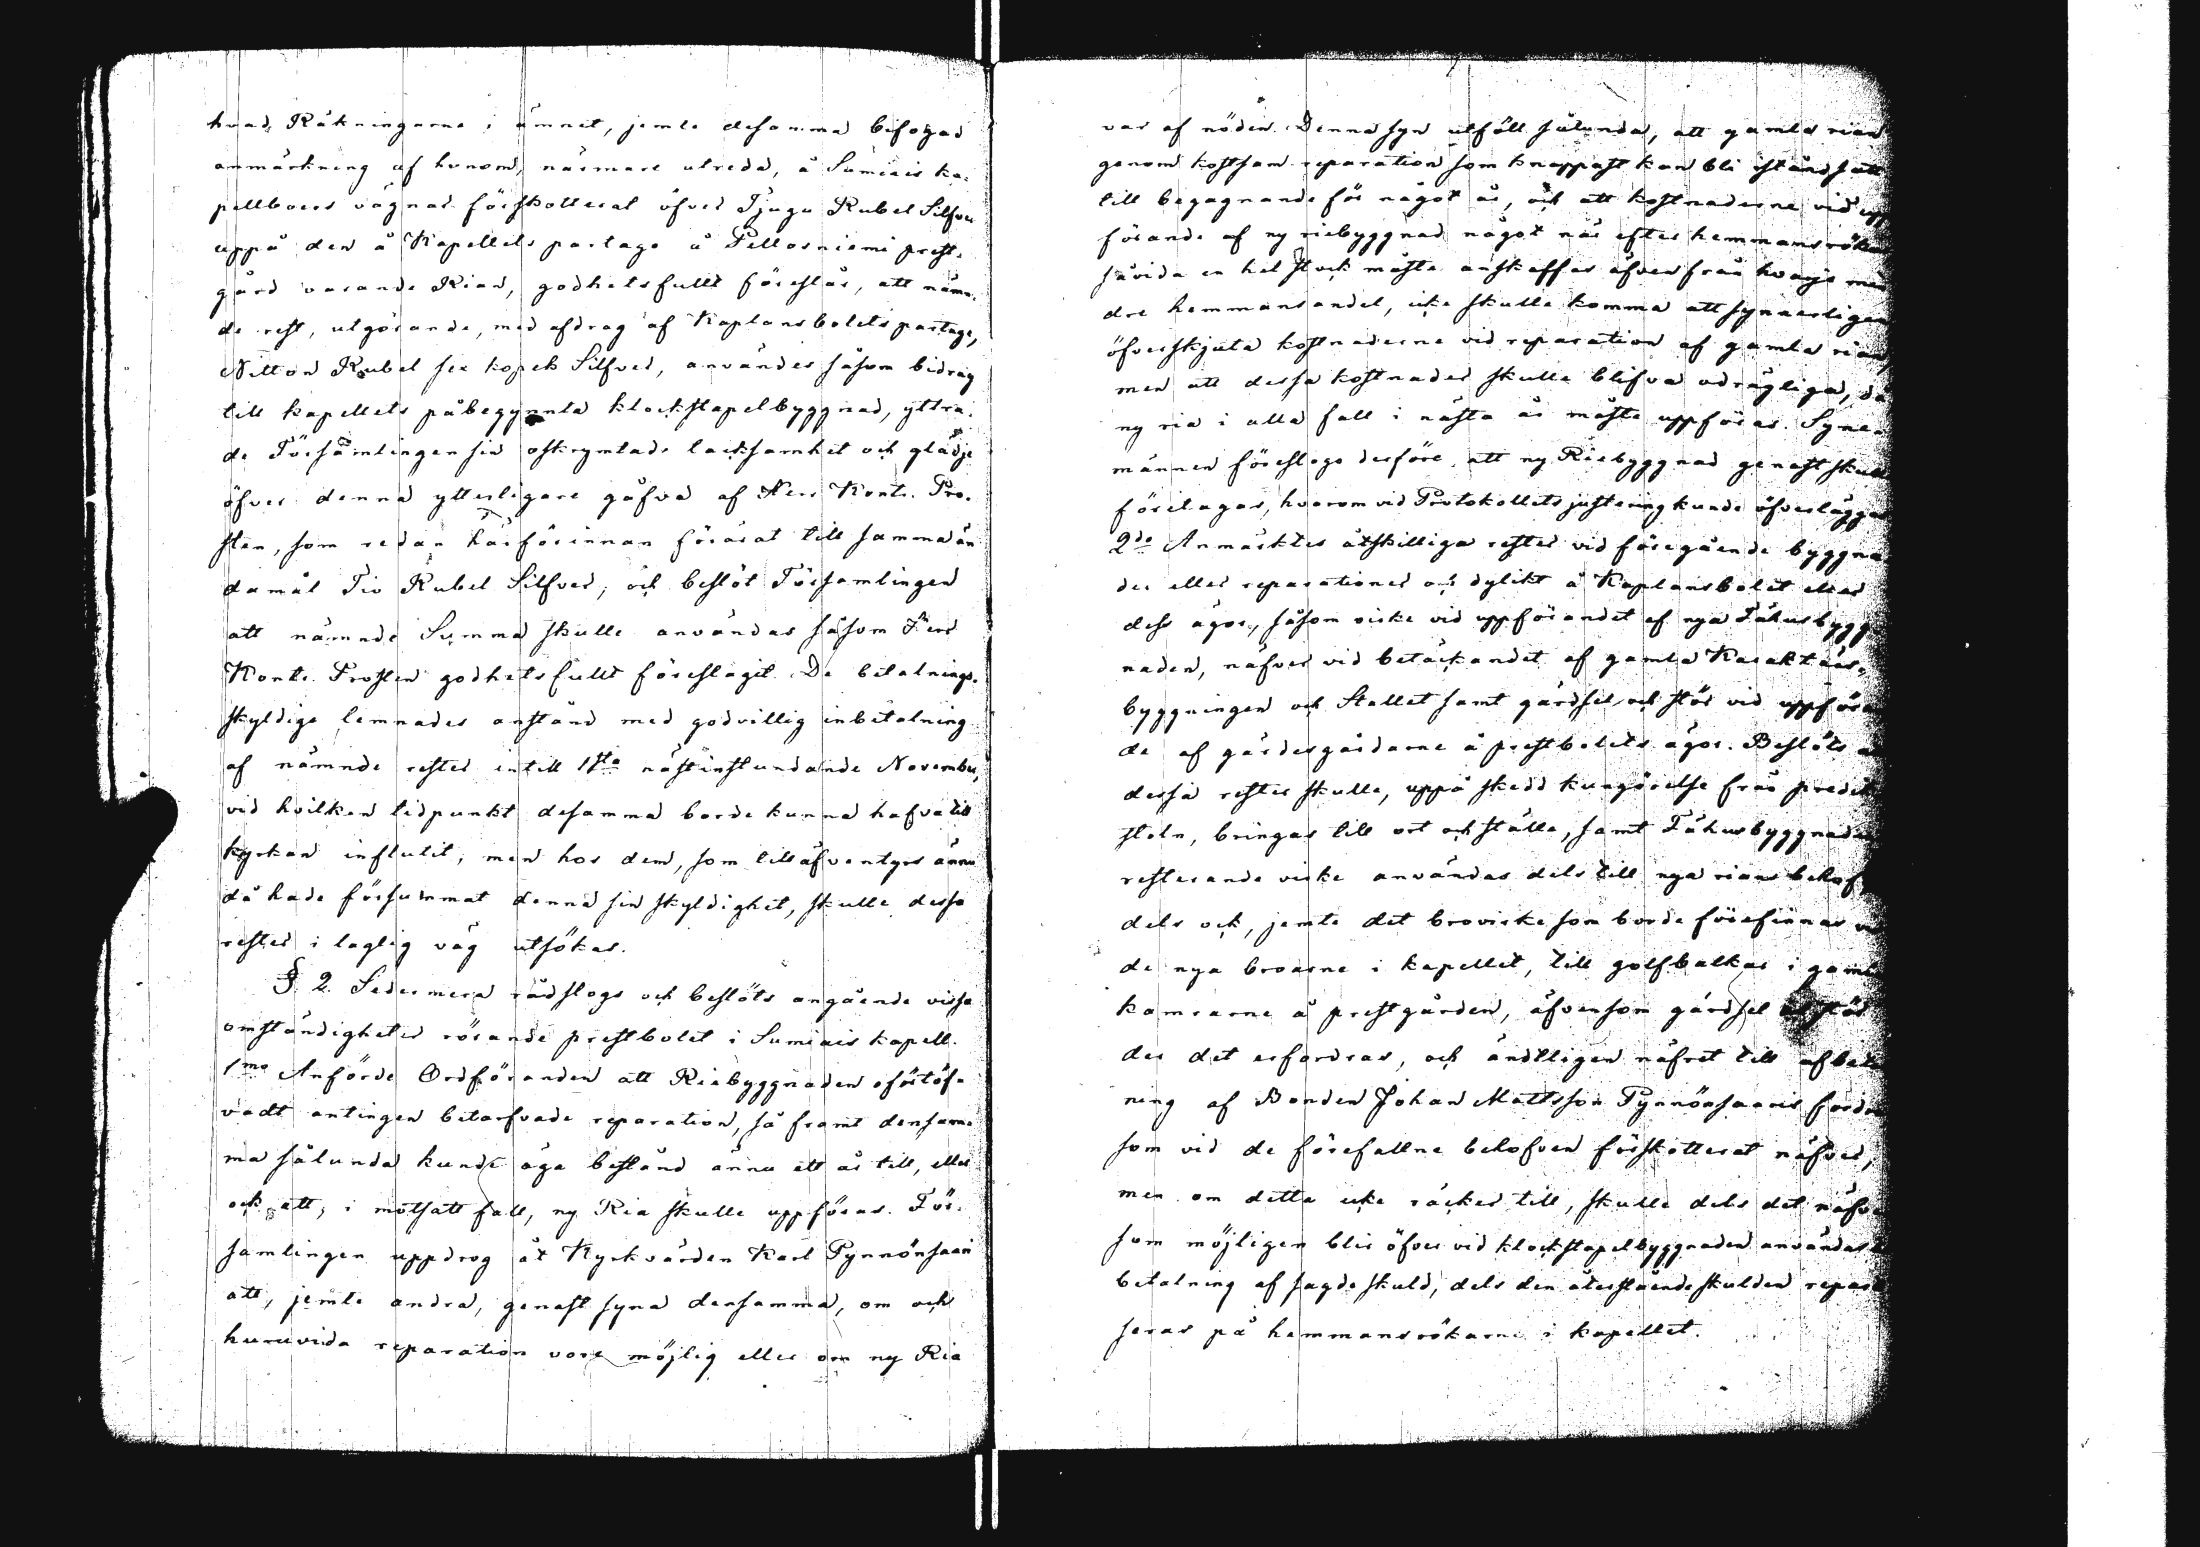 hvad Räkningarne i ämnet, jemte desamma bifogad
anmärkning af honom, närmare utreda, å Sumiais ka-
pellboers vägnar förskotterat öfver Tjugu Rubel Silfver
uppå den å Kapellets partage å Pellosniemi prest-
gård varande Rian, godhetsfullt föreslår, att nämn-
de rest, utgörande, med afdrag af Kaplansbolets partage,
Nitton Rubel sex kopek Silfver, användes såsom bidrag
till kapellets påbegynnta klockstapelbyggnad, yttra-
de Församlingen sin oskrymtade tacksamhet och glädje
öfver denna ytterligare gåfva af Herr Kontr. Pro-
sten, som redan härförinnan förärat till samma än-
damål Tio Rubel Silfver; och beslöt Församlingen
att nämnde Summa skulle användas såsom Herr
Kontr. Prosten godhetsfullt föreslagit. De betalnings-
skyldige lemnades anstånd med godvillig inbetalning
af nämnde rester intill 1sta nästinstundande November,
vid hvilken tidpunkt desamma borde kunna hafva till
kyrkan influtit; men hos dem, som tilläfventyrs ännu
då hade försummat denna sin skyldighet, skulle dessa
rester i laglig väg utsökas.
§ 2. Sedermera rådslogs och beslöts angående vissa
omständigheter rörande prestbolet i Sumiais kapell.
1mo Anförde Ordföranden att Riebyggnaden oförtöf-
vadt antingen betarfvade reparation, så framt densam-
ma sålunda kunde äga bestånd ännu ett år till, eller
ock att, i motsatt fall, ny Ria skulle uppföras. För-
samlingen uppdrog åt Kyrkvärden Karl Pynnönsaari
att, jemte andra, genast syna densamma, om och
huruvida reparation vore möjlig eller om ny Ria
var af nöden. Denna syn utföll sålunda, att gamla rian
genom kostsam reparation som knappast kan bli iståndsatt
till begagnande för något år, och att kostnaderne vid upp-
förande af ny riebyggnad något när efter hemmansröken
såvida en hel stock måste anskaffas äfven från hvarje min-
dre hemmansandel, icke skulle komma att synnerligen
öfverskjuta kostnaderne vid reparation af gamla rian,
men att dessa kostnader skulle blifva odrägliga, då
ny ria i alla fall i nästa år måste uppföras. Syne-
männen föreslogo derföre, att ny Riebyggnad genast skulle
företagas, hvarom vid Protokollets justering kunde öfverläggas
2do Anmärktes åtskilliga rester vid föregående byggna-
der eller reparationer och dylikt å Kaplansbolet eller
dess ägor, såsom virke vid uppförandet af nya Fähusbygg-
naden, näfver vid betäckandet af gamla Karaktärs-
byggningen och Stallet samt gärdsel och stör vid uppföran-
de af gärdesgårdarne å prestbolets ägor. Beslöts att
dessa rester skulle, uppå skedd kungörelse från predik-
stoln, bringas till ort och ställe, samt Fähusbyggnaden
resterande virke användas dels till nya rians behof
dels ock, jemte det brovirke som borde förefinnas vid
de nya broarne i kapellet, till golfbalkar i gamla
kamrarne å prestgården, äfvensom gärdsel och stör
der det erfordras, och ändtligen näfret till afbetal-
ning af Bonden Johan Mattsson Pynnönsaaris fordran
som vid de förefallne behofven förskotterat näfver;
men om detta icke räcker till, skulle dels det näfver
som möjligen blir öfver vid klockstapelbyggnaden användas till
betalning af sagde skuld, dels den återstående skulden repar-
seras på hemmansrökarne i kapellet.